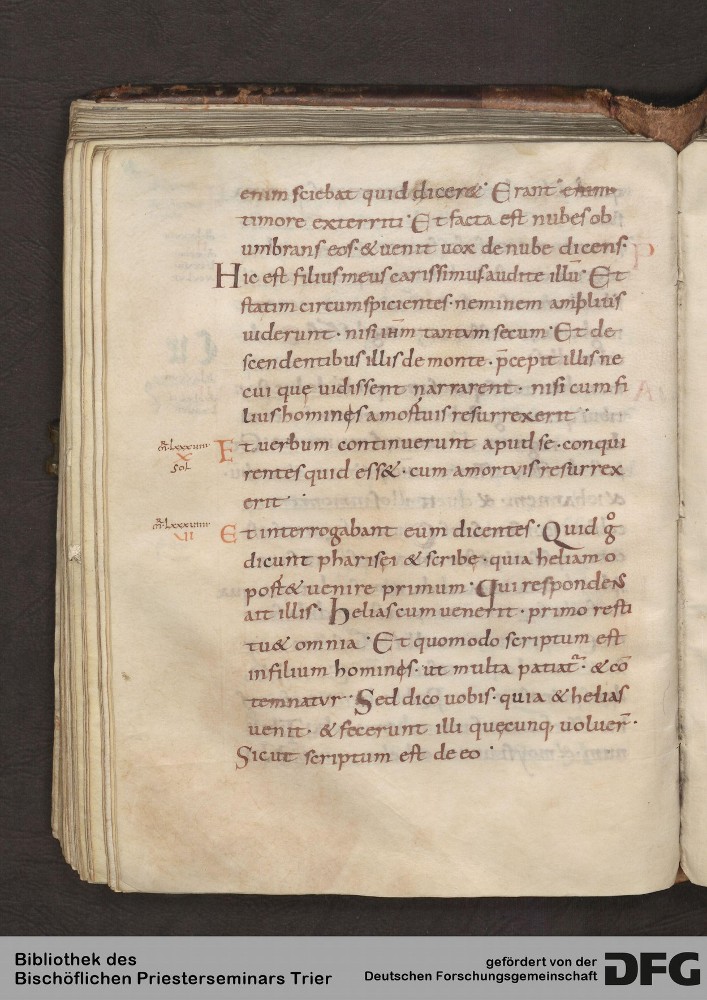 enim sciebat quid diceret· Erant enim
timore exterriti· Et facta est nubes ob
umbrans eos· & uenit uox de nube dicens·
Hic est filius meus carissimus audite illū· Et
statim circumspicientes· neminem amplius
uiderunt· nisi ihm̄ tantum secum· Et de
scendentibus illis de monte· p̄cepit illis ne
cui quę uidissent narrarent· nisi cum fi
lius hominis a mortuis resurrexerit·
m̄r lxxxviiii Et uerbum continuerunt apud se· conqui
x
sol
rentes quid ess&· cum a mortuis resurrex
erit·
m̄r lxxxviiii Et interrogabant eum dicentes· Quid gͦ
vii
dicunt pharisei & scribę· quia heliam o
port& uenire primum· Qui respondens
ait illis· helias cum uenerit· primo resti
tu& omnia· Et quomodo scriptum est
in filium hominis· ut multa patiat᷑· & cō
temnatur· Sed dico uobis· quia & helias
uenit· & fecerunt illi quęcunq; uoluer̄·
Sicut scriptum est de eo·
Bibliothek des
Bischöflichen Priesterseminars Trier
gefördert von der
Deutschen Forschungsgemeinschaft DFG